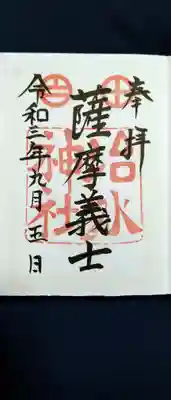 奉拝
治水
神社
薩摩義士
令和三年九月五日